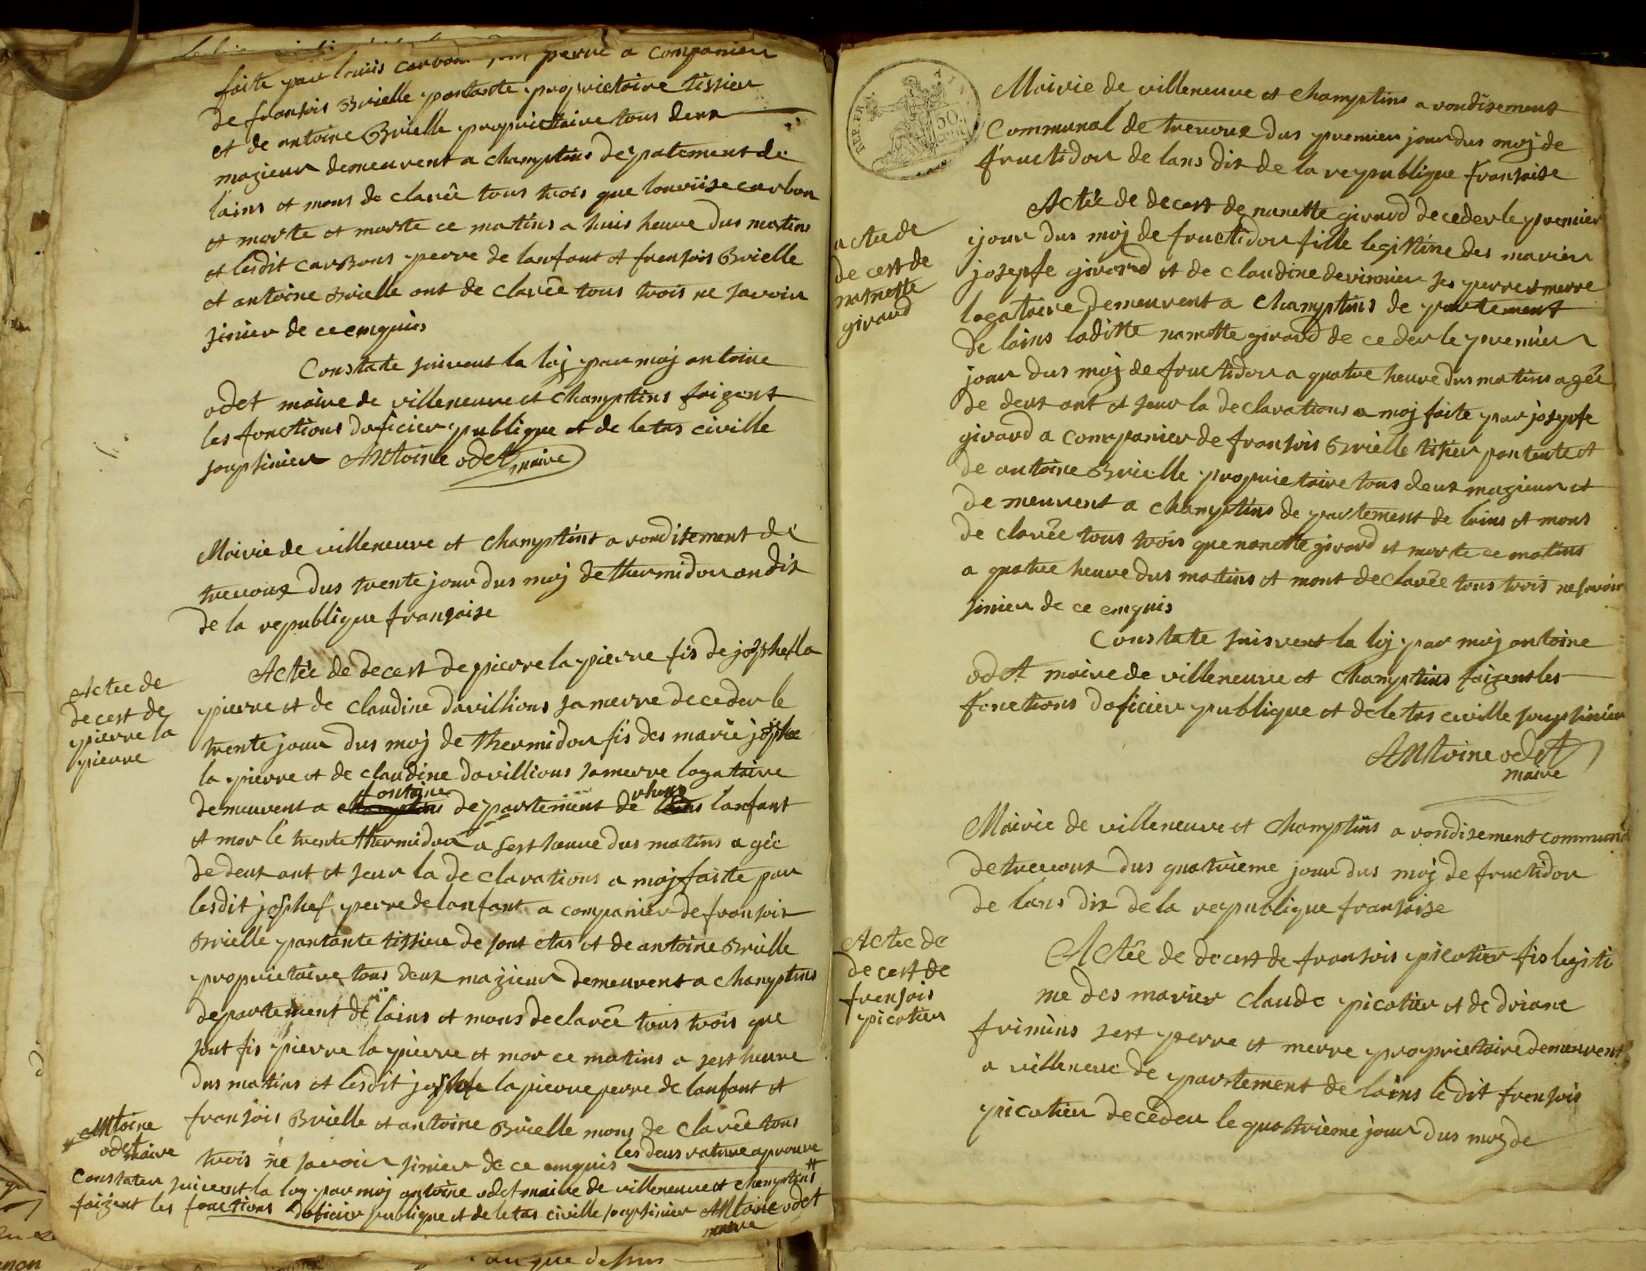 faite par louis carbon son perre a companier
de fransois Brielle pantante proprietaire tissier
et de antoine Brielle proprietaire tous deux
magieur demeurent a champtins depatement de
lains et mons de clarée tous trois que louviise carbon
et morte et morte ce matins a huis heure dus matins
et lesdit carbons perre de lanfant et fransois Brielle
et antoine Brielle ont de clarée tous trois ne savoir
sinier de ce enquis
Constate suivent la loj par moj antoine
odet maire de villeneuve et champtins faizent
les fonctions doficier publique et de letas civille
soupsinier Antoine odet maire
Mairie de villeneuve et champtins a rondisement de
trevoux dus trente jour dus moj de thermidor an dix
de la republique franzaise
Actée de
decest de
pierre la
pierre
Actée de decest de pierre la pierre fis de josphe la
pierre et de claudine davillions sa merre deceder le
trente jour dus moj de thermidor fis des marié josphe
la pierre et de claudine davillions sa merre logataire
demeurent a departement de lanfant
et mor le trente thermidor a sest heure dus matins agée
de deux ant et seur la de clarations a moj faite par
lesdit josphe perre de lanfant a companier de fransois
Brielle pantante tissier de sont etas et de antoine Brielle
proprietaire tous deux magieur demeurent a champtins
departement de lains et mons declarée tous trois que
sont fis pierre la pierre et mor ce matins a sest heure
dus matins et lesdit josphe la pierre perre de lanfant et
fransois Brielle et antoine Brielle mons de clarée tous
trois né savoir sinier de ce enquis les deux rature aprouve
Antoine
odet maire
Constater suivent la loy par moj antoine odet maire de villeneuve et champtins
faizent les fonctions doficier publique et de letas civille soupsinier Antoine odet
maire
an que desus
Mairie de villeneuve et champtins a rondisement
Communal de trevoux dus premier jour dus moj de
fructidor de lans dix de la republique franzaise
actée de
decest de
nannette
giraud
Actée de decest de nanette girard deceder le premier
jour dus moj de fructidor fille legitime des marier
josepfe girard et de claudine devinnier ses perre et merre
logataire demeurent a champtins de partement
de lains laditte nanette girard de ceder le premier
jour dus moj de fructidor a quatre heure dus matins agée
de deux ant et seur la declarations a moj faite par josepfe
girard a companier de fransois Brielle tisier pantente et
de antoine Brielle proprietaire tous deux magieur et
demeurent a champtins de partement de lains et mons
de clarée tous trois que nanette girard et morte ce matins
a quatre heure dus matins et mont declarée tous trois ne savoir
sinier de ce enquis
Constate suisvent la loj par moj antoine
odet maire de villeneuve et champtins faizent les
fonctions doficier publique et de letas civille soupsinier
Antoine odet
maire
Mairie de villeneuve et champtins a rondisement communal
de trevoux dus quatrieme jour dus moj de fructidor
de lans dix de la republique fransoise
Actée de
decest de
fransois
picotier
Actée de decest de fransois picotier fis legiti
me des marier claude picotier et de driane
frimins sest perre et merre proprietaire demeurent
a villeneuve de partement de lains le dit fransois
picotier deceder le quatrieme jour dus moj de